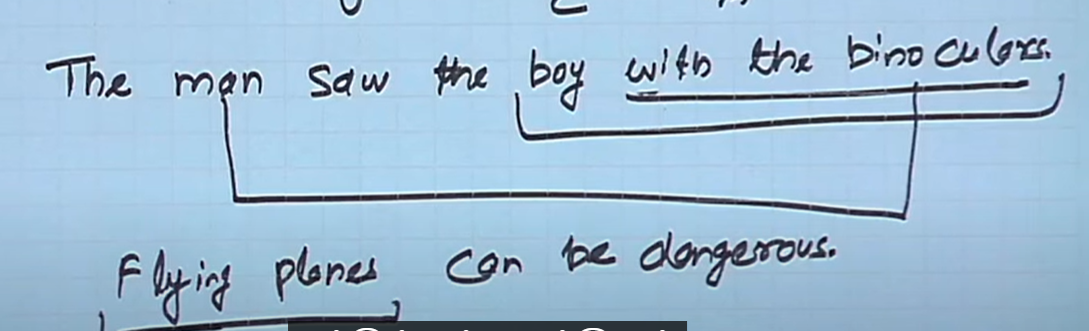 The man saw the boy with the binoculars.
Flying planes can be dangerous.